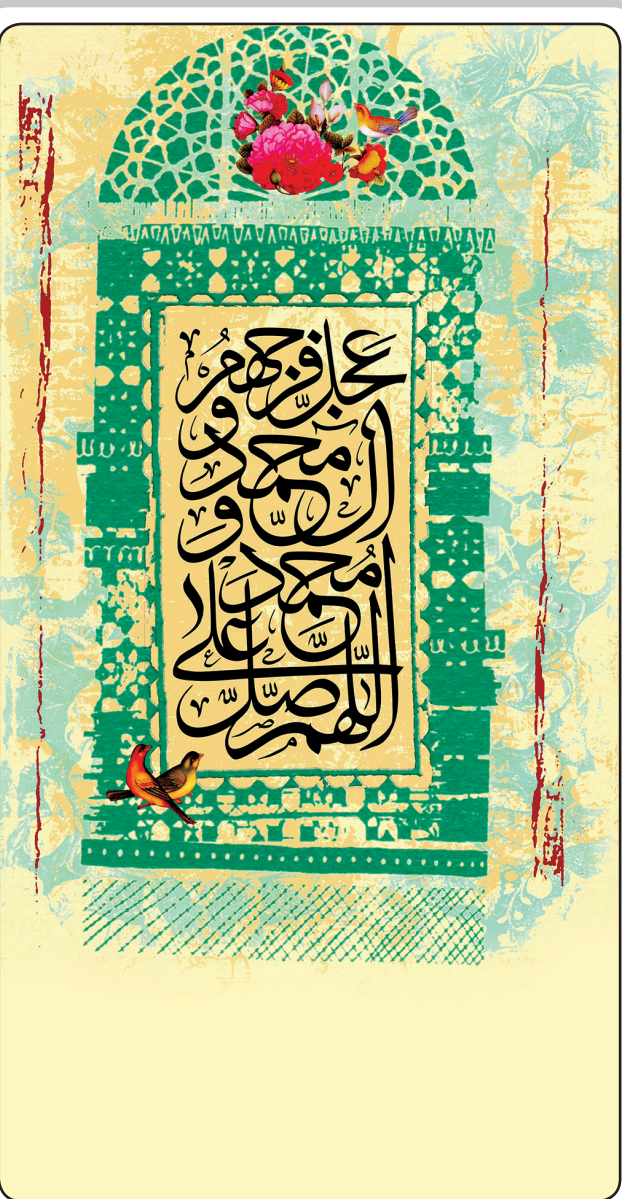 اللّهمّ صلّ علی
محمّد و
آل محمّد و
عجل فرّجهم